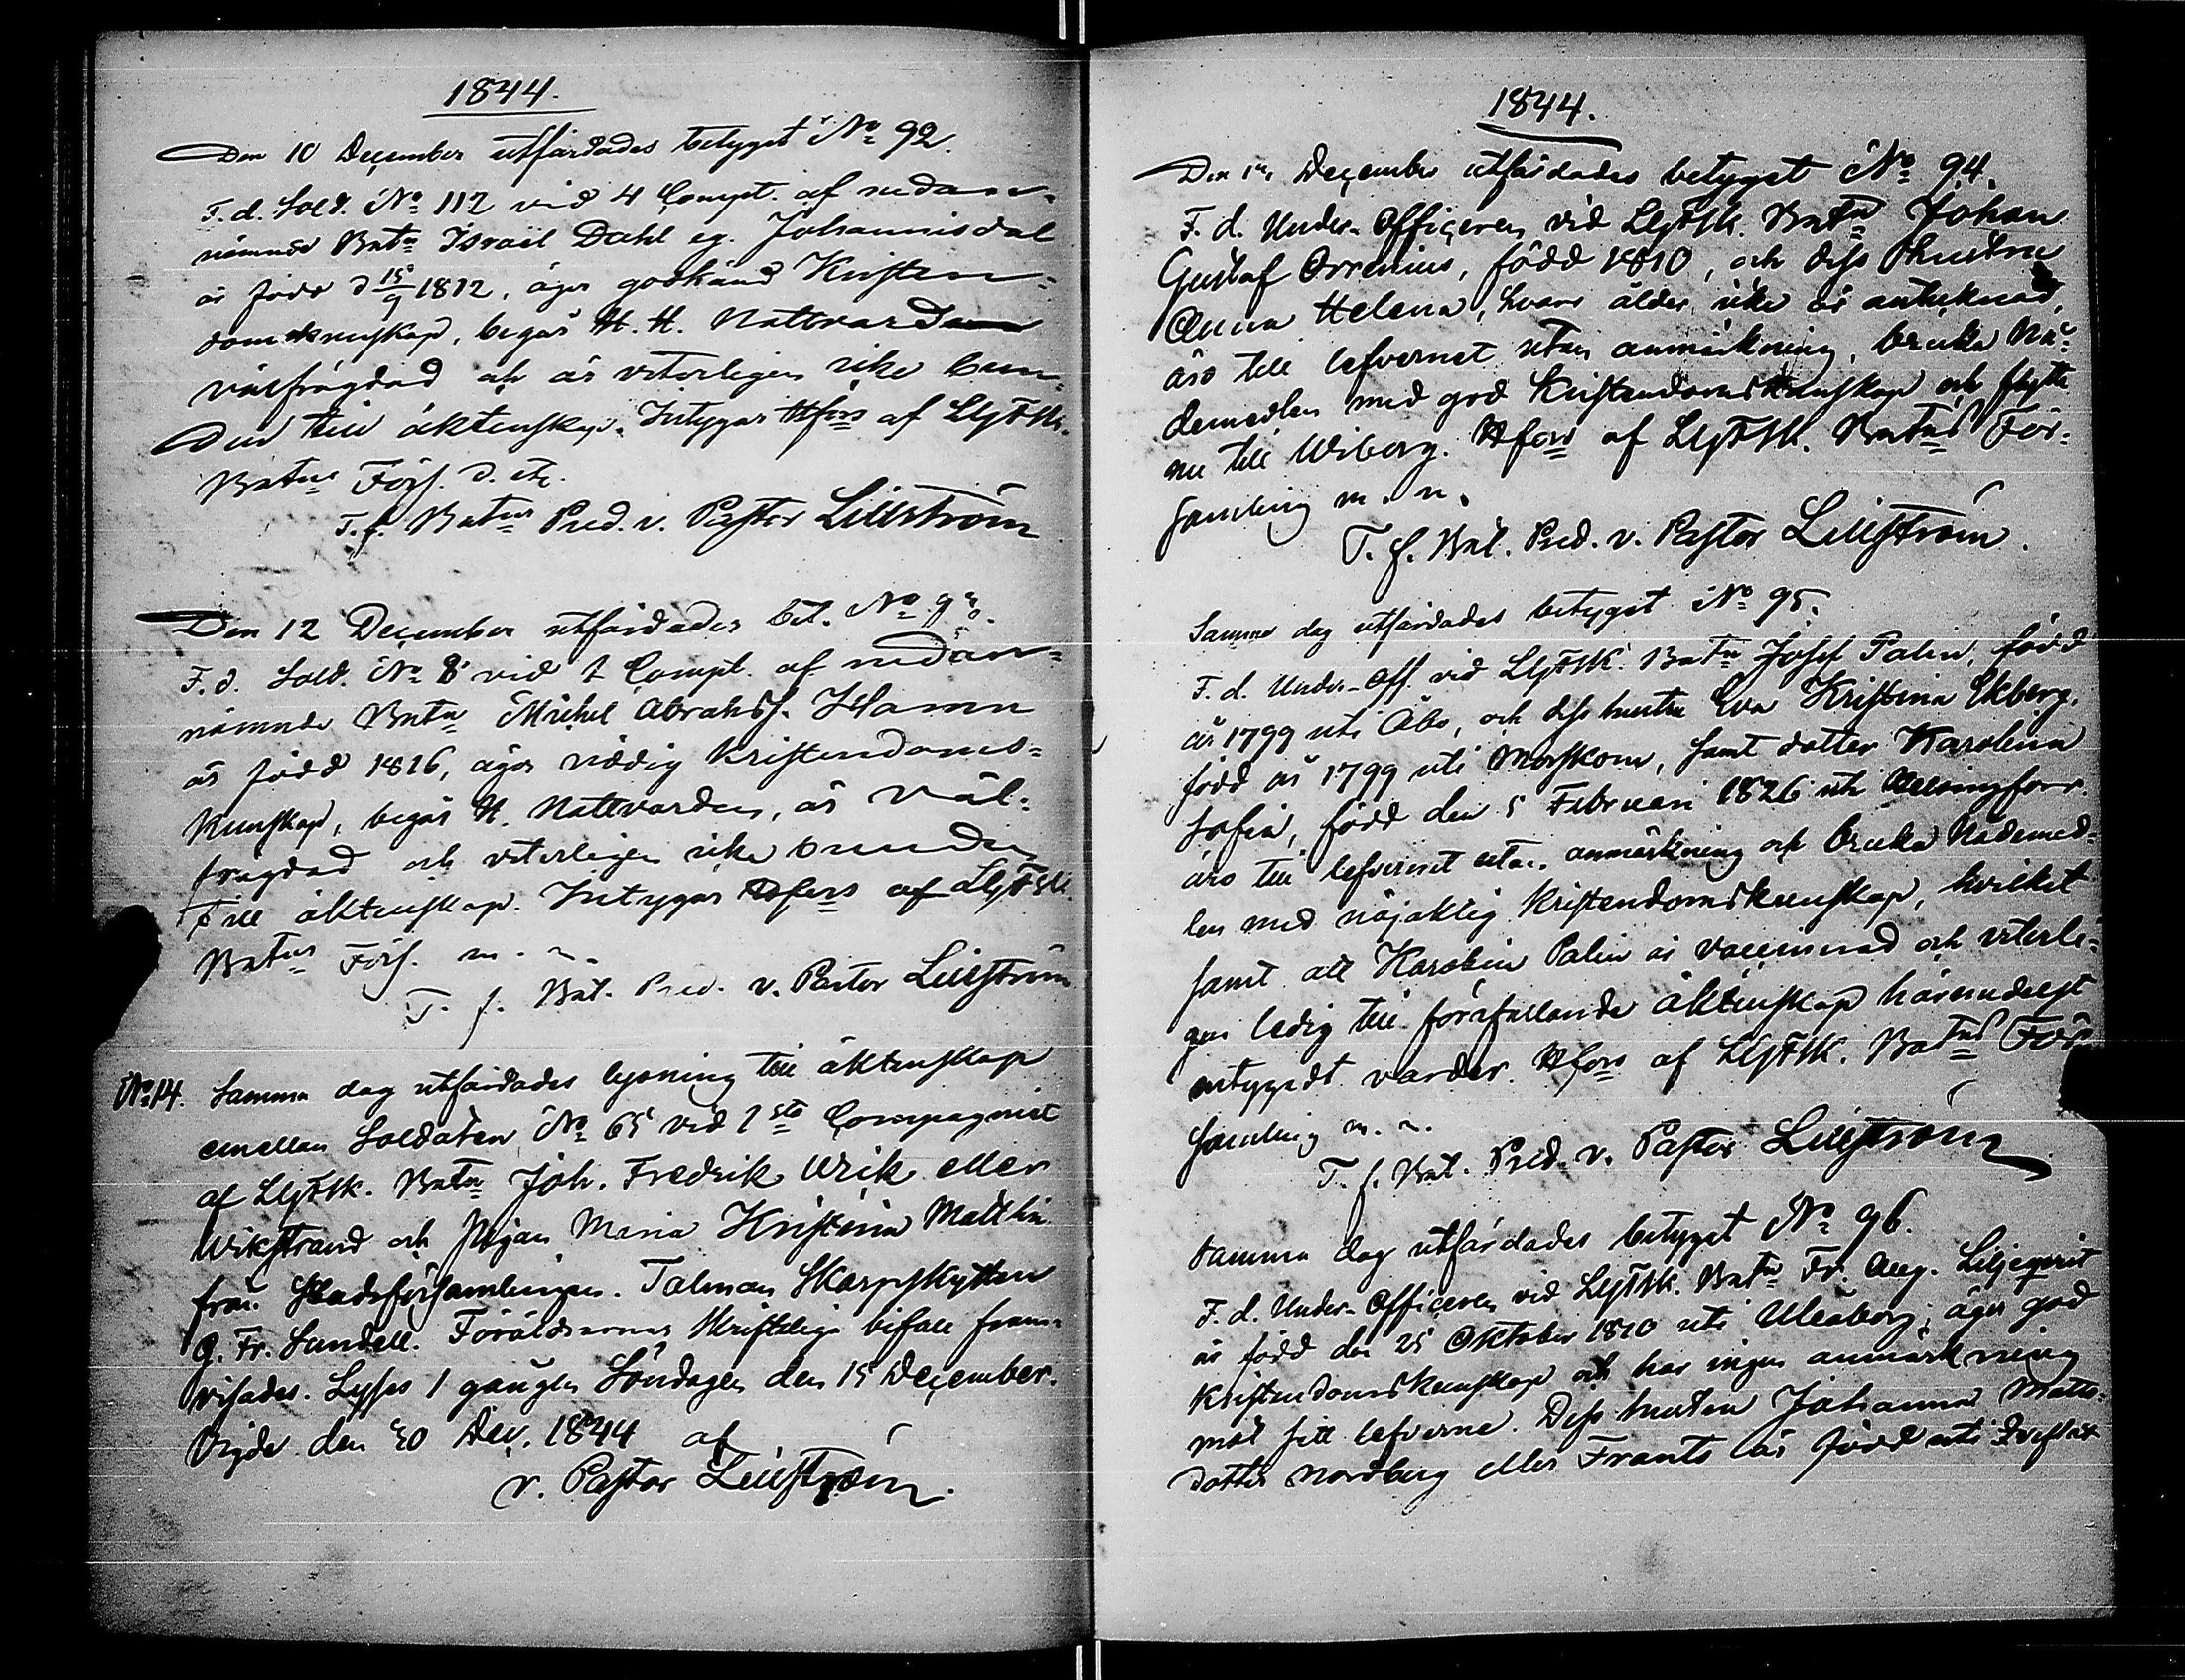 1844.
Den 10 December utfärdades betyget No 92.
F. d. Sold. No 112 vid 4 Compt. af nedan-
nämnde Batn Israël Dahl eg. Johannisdal
är född d 15/9 1812, äger godkänd Kristen-
domskunskap, begår H. H. Nattvarden
välfrägdad och är veterligen icke bun-
den till äktenskap. Intygar Hfors af
Batns Förs. d. etc.
T. f. Batns Pred. v. Pastor Lillström
Den 12 December utfärdades bet. No 93.
F. d. Sold. No 8 vid 1 Compt. af nedan-
nämnde Batn Michel Abrahsf. Hamn
är född 1816, äger nödig Kristendoms-
kunskap, begår H. Nattvarden, är väl-
frägdad och veterligen icke bunden
till äktenskap. Intygar Hfors af
Batns Förs. m. n.
T. f. Bat. Pred. v. Pastor Lillström
No 14. Samma dag utfärdades lysning till äktenskap
emellan Soldaten No 65 vid 1sta Compagniet
af Batn Joh. Fredrik Wik eller
Wikstrand och Pigan Maria Kristina Mattlin
från Stadsförsamlingen. Talman Skarpskytten
G. Fr. Sandell. Föräldrarnas skriftliga bifall fram-
visades. Lystes 1 gången Söndagen den 15 December.
Vigde den 30 Dec. 1844 af
v. Pastor Lillström.
1844.
Den December utfärdades betyget No 94.
F. d. Under-Officeren vid Batn Johan
Gustaf Orrenius, född 1810, och dess hustru
Anna Helena, hvars ålder icke är antecknad,
äro till lefvernet utan anmärkning, bruka Nå-
demedlen med god Kristendomskunskap och flytta
nu till Wiborg. Hfors af Batns För-
samling m. n.
T. f. Bat. Pred. v. Pastor Lillström.
Samma dag utfärdades betyget No 95.
F. d. Under-Off. vid Batn Josef Palin, född
år 1799 uti Åbo, och dess hustru Eva Kristina Ekberg,
född år 1799 uti Morskom, samt dotter Karolina
Sofia, född den 5 Februari 1826 uti Helsingfors.
äro till lefvernet utan anmärkning och bruka Nådemed-
len med nöjaktig Kristendomskunskap, hvilket
samt att Karolina Palin är vaccinerad och veterli-
gen ledig till förefallande äktenskap härmedelst
intygadt varder. Hfors af Batns För-
samling m. n.
T. f. Bat. Pred. v. Pastor Lillström
Samma dag utfärdades betyget No 96.
F. d. Under-Officeren vid Batn Fr. Aug. Liljeqvist
är född den 25 Oktober 1810 uti Uleåborg; äger god
Kristendomskunskap och har ingen anmärkning
mot sitt lefverne. Dess hustru Johanna Matts-
dotter Nordberg eller Frants är född uti